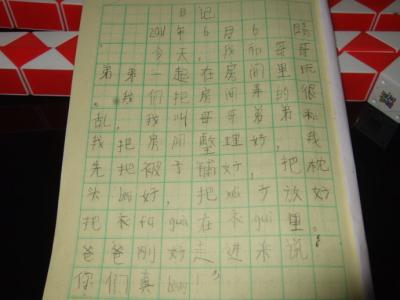 日记
2011年6月6 晴
今天，我和哥哥
弟弟一起在房间里玩
。我们把房间弄的很
乱，我叫哥哥弟弟和
我把房间整理好，我
先把被子铺好，把枕
头bai好，把 子放好
把衣 gua在衣gui里。
爸爸刚好走进来说：
你们真bang！"